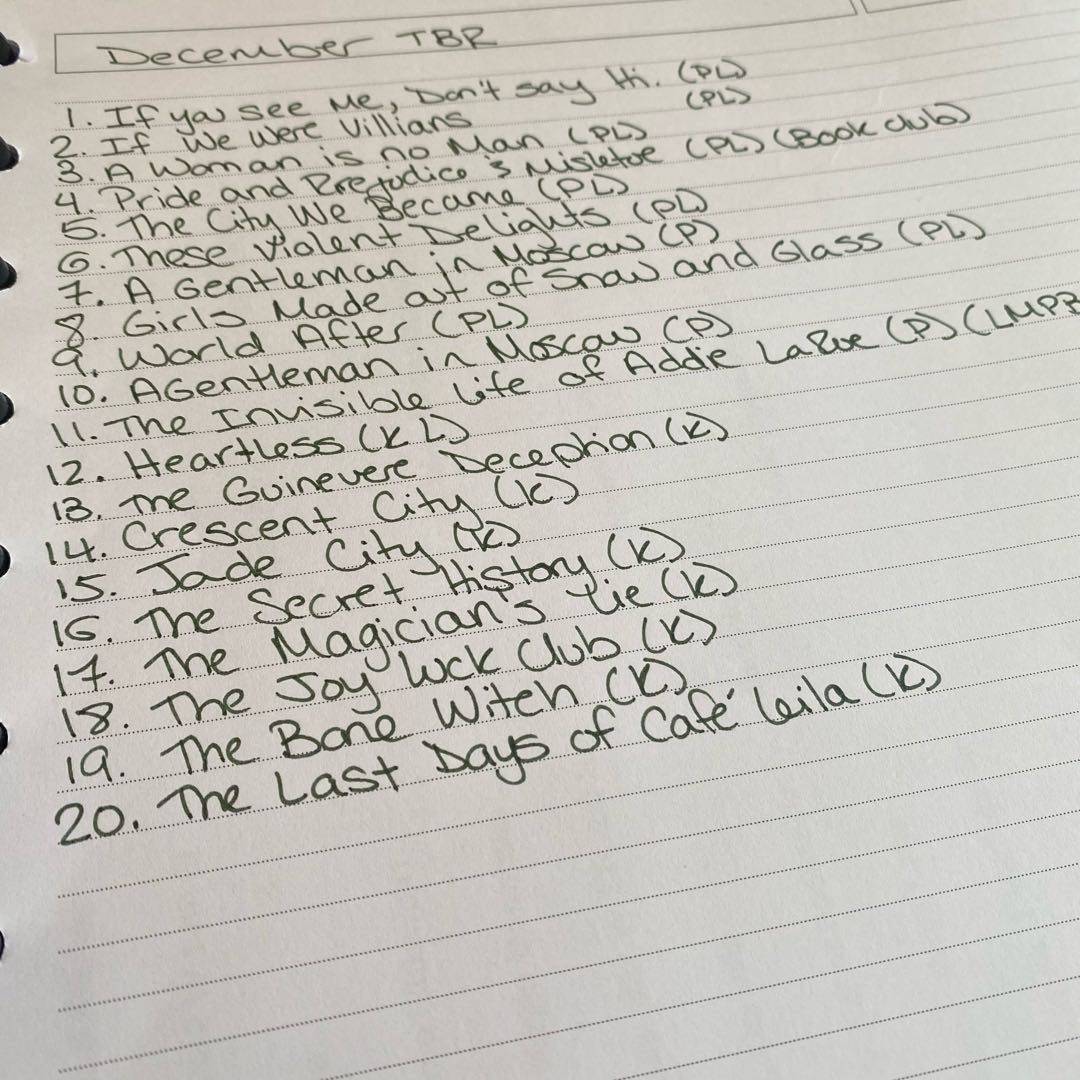 December TBR
1. If you see Me, Don't say Hi. (PL)
2. If We Were Villians (PL)
3. A Woman is no Man (PL)
4. Pride and Prejudice & Misletoe (PL) (Book club)
5. The City We Became (PL)
6. These Violent Delights (PL)
7. A Gentleman in Moscow (P)
8. Girls Made out of Snow and Glass (PL)
9. World After (PL)
10. A Gentleman in Moscow (P)
11. The Invisible Life of Addie LaRue (P) (LMPB
12. Heartless (KL)
13. The Guinevere Deception (K)
14. Crescent City (K)
15. Jade City (K)
16. The Secret History (K)
17. The Magician's Lie (K)
18. The Joy Luck Club (K)
19. The Bone Witch (K)
20. The Last Days of Café Leila (K)